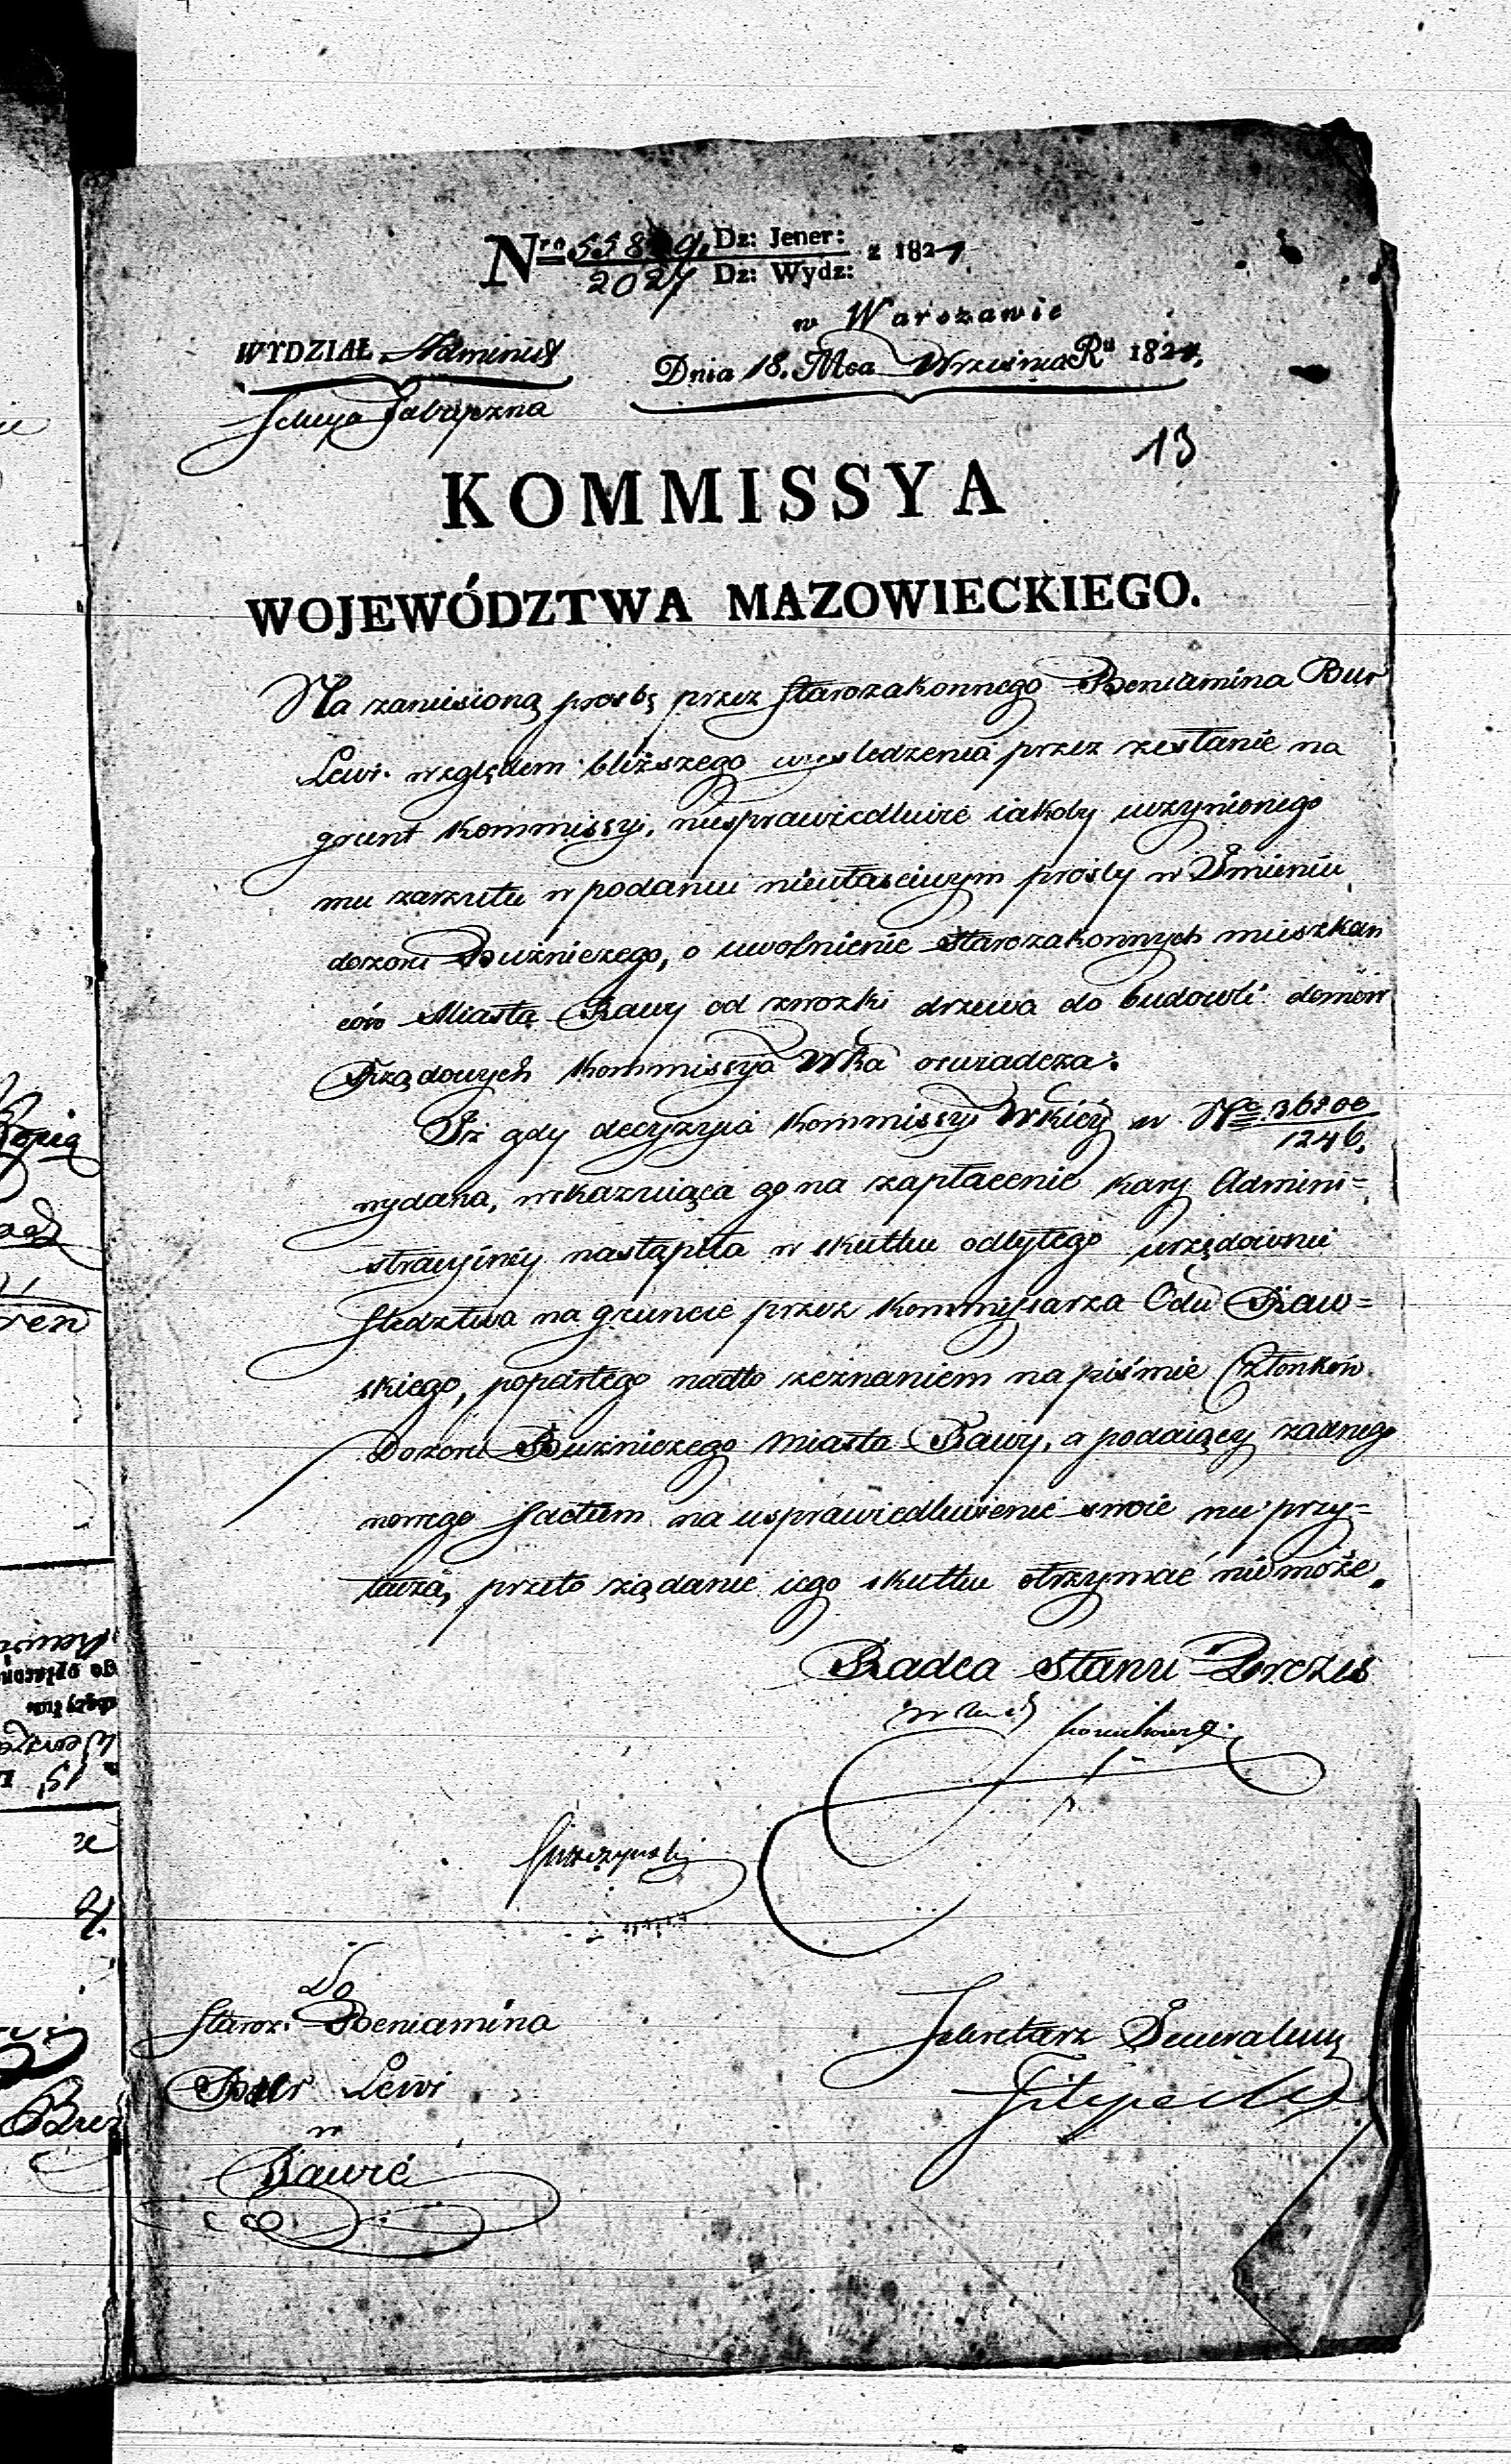 Nro 558 9. Dz: Jener: z 1827
2027 Dz: Wydz:
w Warszawie
WYDZIAŁ Administ
Dnia 18. Mca Września Ru 1827.
Sekcya Fabryczna
13
KOMMISSYA
WOJEWÓDZTWA MAZOWIECKIEGO.
Na zaniesioną prośbę przez Starozakonnego Beniamina Bur
Lewi względem bliższego wyśledzenia przez zesłanie na
grunt Kommissyi, niesprawiedliwie iakoby uczynionego
mu zarzutu w podaniu niewłaściwym prośby w Imieniu
dozoru Bużniczego, o uwolnienie Starozakonnych mieszkań
ców Miasta Rawy od zwozki drzewa do budowli domów
Rządowych Kommissya Wka oswiadcza:
Iż gdy decyzyia Kommissyi Wkiéy w No 36800
1246.
wydana, wskazuiąca go na zapłacenie kary Admini=
stracyinéy nastąpiła w skutku odbytego urzędownie
Sledztwa na gruncie przez Kommissarza Odu Raw=
skiego, popartego nadto zeznaniem na piśmie Członków
Dozoru Bużniczego Miasta Rawy, a podaiący żadnego
nowego factum na usprawiedliwienie swoie nie przy=
tacza, przeto żądanie iego skutku otrzymać nie może.
Radca Stanu Prezes
Do
Staroz. Beniamina
Bur Lewi
w
Rawie
Sekretarz Generalny
Filipecki